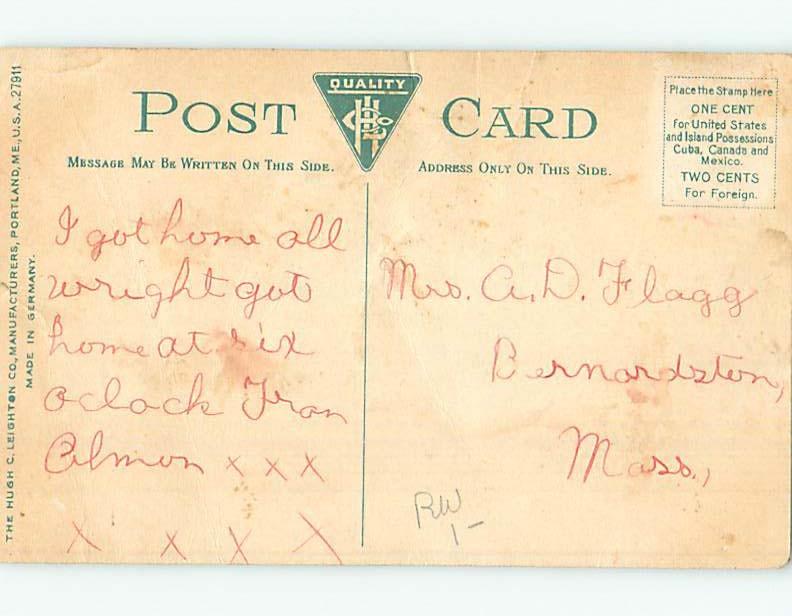 THE HUGH C. LEIGHTON CO., MANUFACTURERS, PORTLAND, ME., U.S.A. 27911
MADE IN GERMANY.
POST CARD
QUALITY
MESSAGE MAY BE WRITTEN ON THIS SIDE.
ADDRESS ONLY ON THIS SIDE.
Place the Stamp Here
ONE CENT
for United States
and Island Possessions
Cuba, Canada and
Mexico.
TWO CENTS
For Foreign.
I got home all
wright got
home at six
oclock Fran
Almon x x x
x x x x
Mrs. A. D. Flagg
Bernardston,
Mass.,
RW
1-